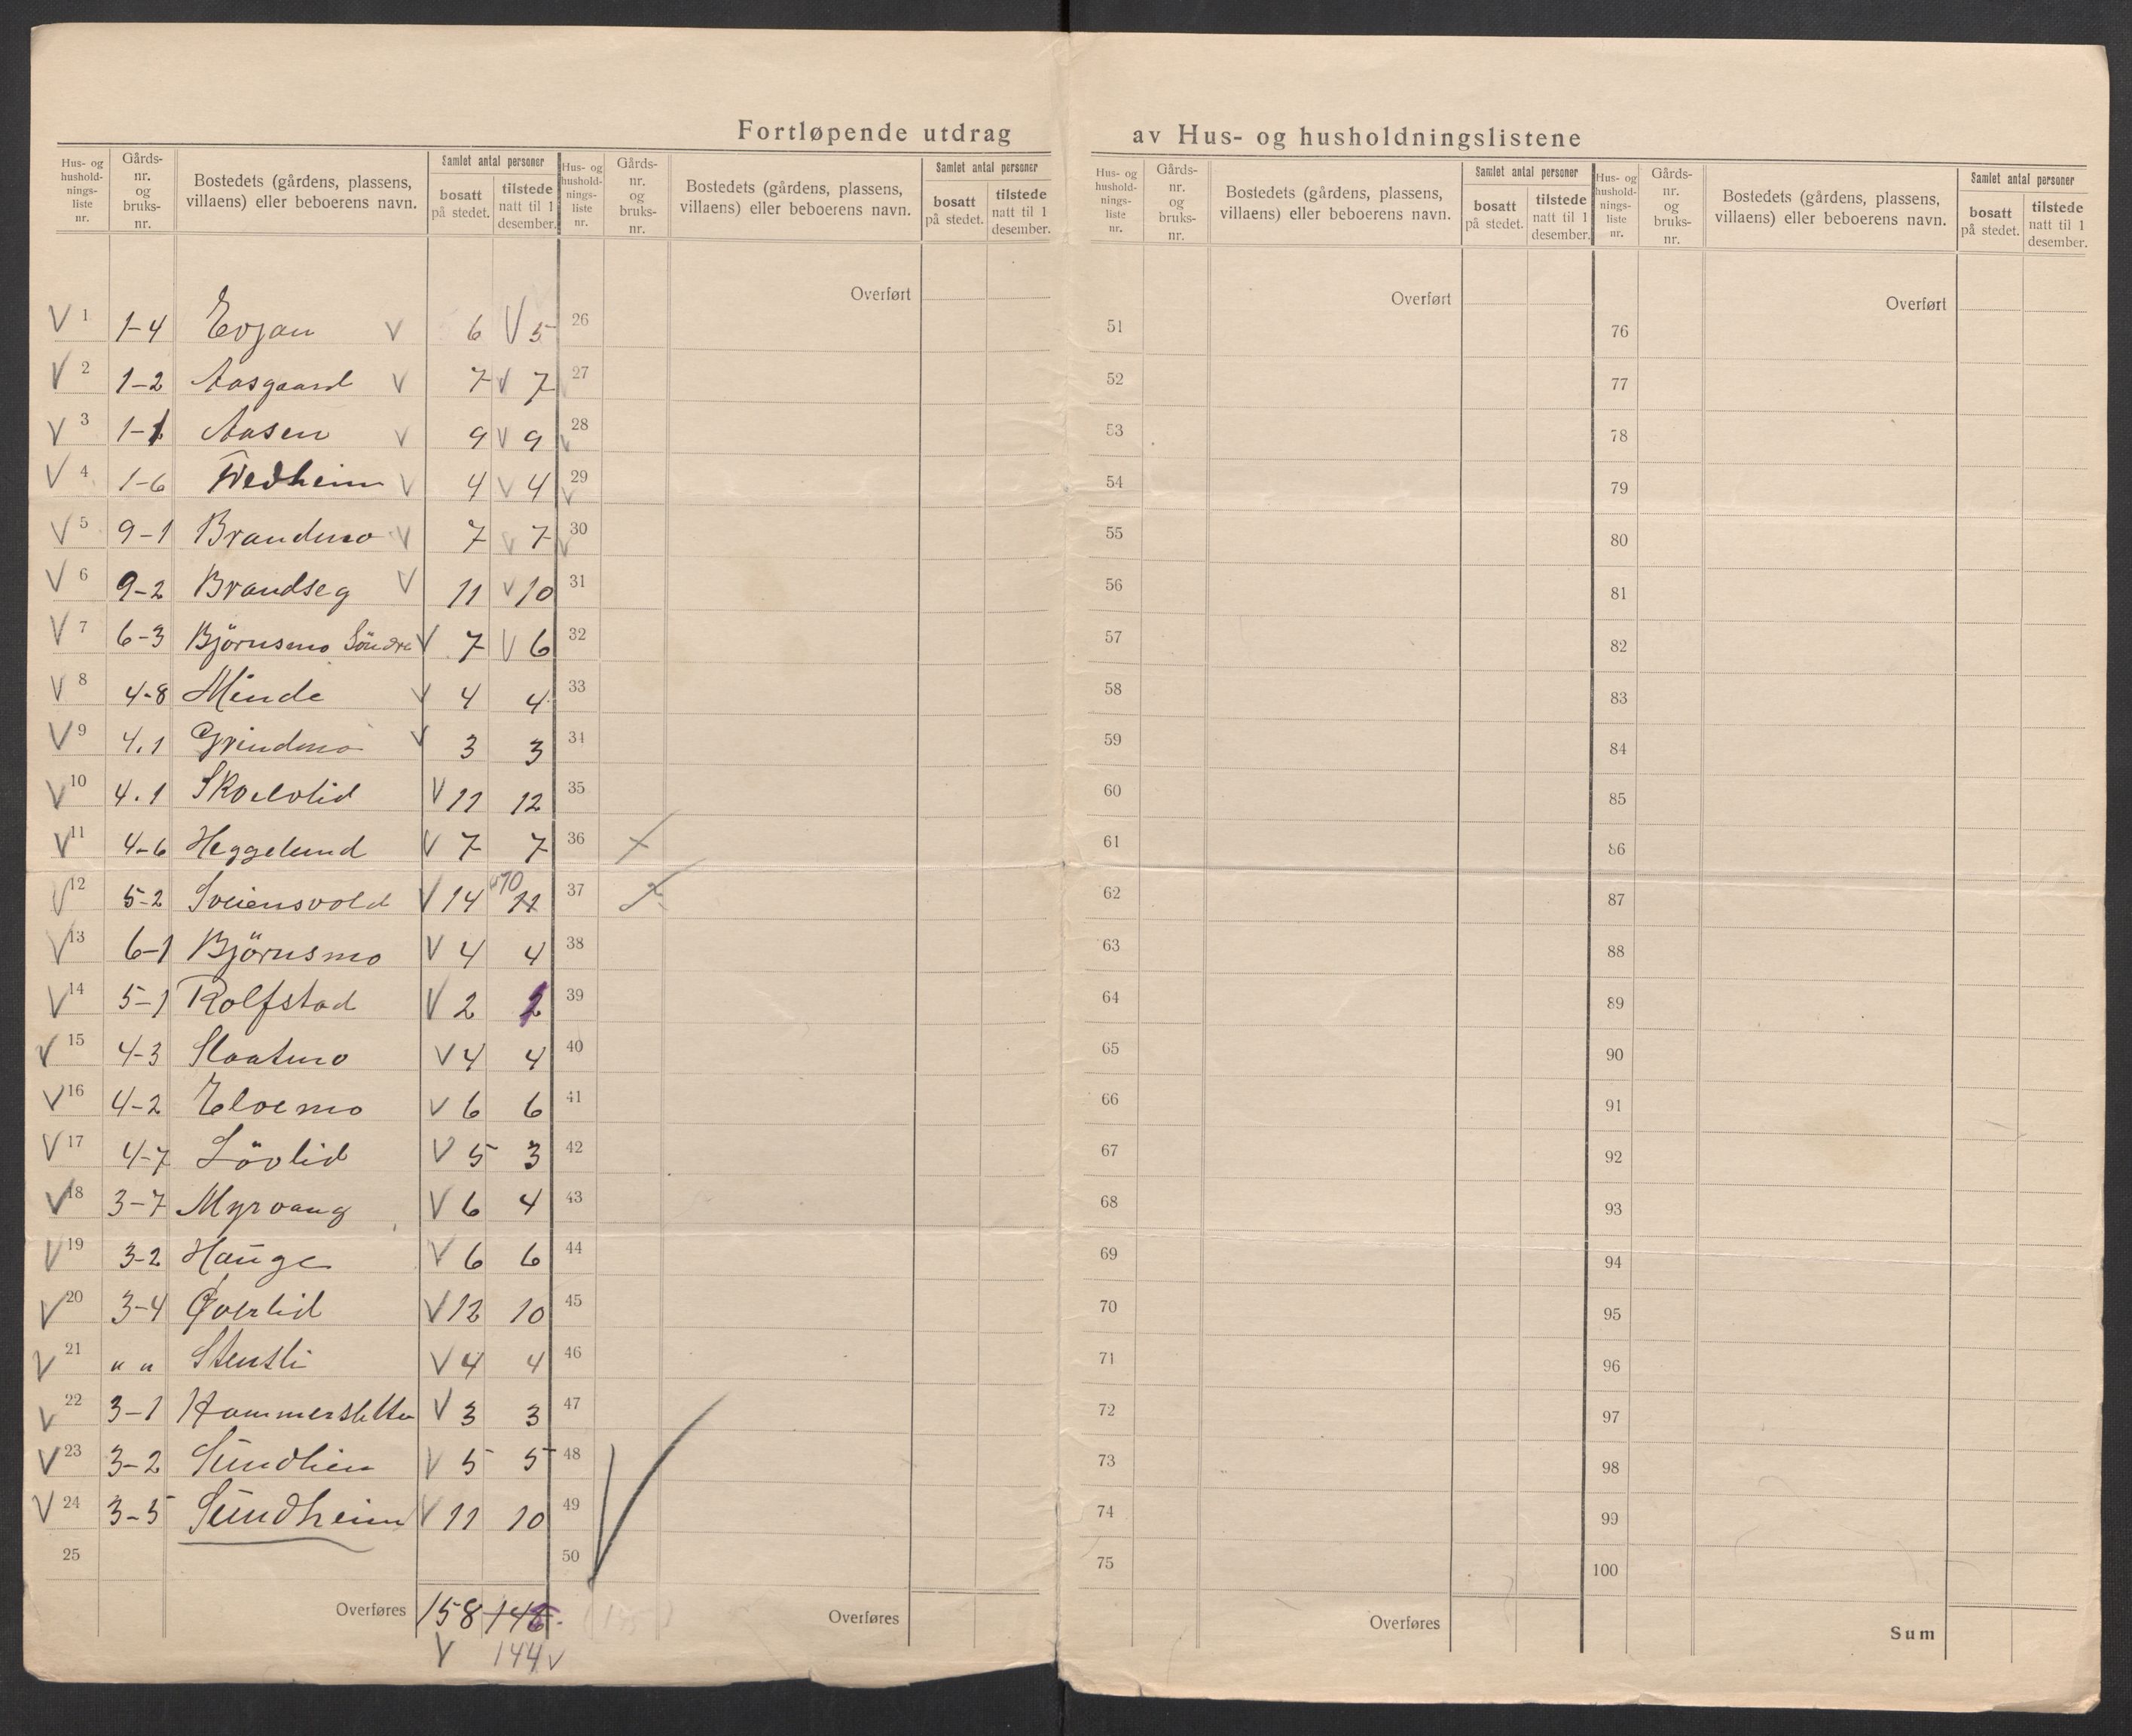 Fortløpende utdrag av Hus- og husholdningslistene
Hus- og hushold-nings-liste nr. Gårds-nr. og bruks-nr. Bostedets (gårdens, plassens, villaens) eller beboerens navn. Samlet antal personer bosatt på stedet. tilstede natt til 1 desember.
V 1 1-4 Evjan V 6 V 5
V 2 1-2 Aasgaard V 7 V 7
V 3 1-1 Aasen V 9 V 9
V 4 1-6 Fredheim V 4 V 4
V 5 9-1 Brandmo V 7 V 7
V 6 9-2 Brandseg V 11 V 10
V 7 6-3 Björnsmo Söndre V 7 V 6
V 8 4-8 Minde V 4 4
V 9 4.1 Grindmo V 3 3
V 10 4.1 Skoelvlid V 11 12
V 11 4-6 Heggelund V 7 7
V 12 5-2 Sveiensvold V 14 11 10
V 13 6-1 Björnsmo V 4 4
V 14 5-1 Rolfstad V 2 2
V 15 4-3 Slaatmo V 4 4
V 16 4-2 Elvemo V 6 6
V 17 4-7 Lövlid V 5 3
V 18 3-7 Myrvang V 6 4
V 19 3-2 Hauge V 6 6
V 20 3-4 Øverlid V 12 10
V 21 " " Stensli V 4 4
V 22 3-1 Hammersletten V 3 3
V 23 3-2 Sundheim V 5 5
V 24 3-5 Sundheim V 11 10
25
Overføres 158 145
V 144 V
Hus- og hushold-nings-liste nr. Gårds-nr. og bruks-nr. Bostedets (gårdens, plassens, villaens) eller beboerens navn. Samlet antal personer bosatt på stedet. tilstede natt til 1 desember.
Overført
26
27
28
29
30
31
32
33
34
35
36
37
38
39
40
41
42
43
44
45
46
47
48
49
50
Overføres
Hus- og hushold-nings-liste nr. Gårds-nr. og bruks-nr. Bostedets (gårdens, plassens, villaens) eller beboerens navn. Samlet antal personer bosatt på stedet. tilstede natt til 1 desember.
Overført
51
52
53
54
55
56
57
58
59
60
61
62
63
64
65
66
67
68
69
70
71
72
73
74
75
Overføres
Hus- og hushold-nings-liste nr. Gårds-nr. og bruks-nr. Bostedets (gårdens, plassens, villaens) eller beboerens navn. Samlet antal personer bosatt på stedet. tilstede natt til 1 desember.
Overført
76
77
78
79
80
81
82
83
84
85
86
87
88
89
90
91
92
93
94
95
96
97
98
99
100
Sum